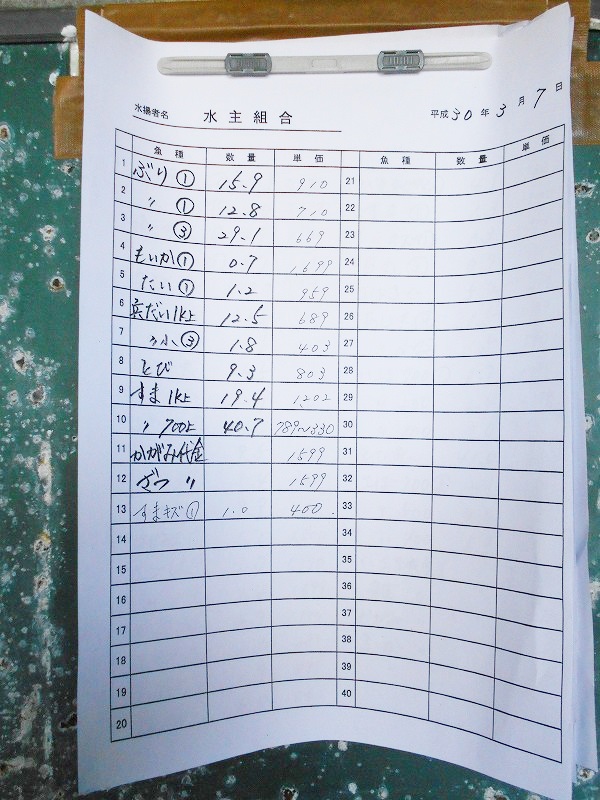 水揚者名 水主組合 平成30年3月7日
魚種 数量 単価 魚種 数量 単価
1 ぶり① 15.9 910 21
2 〃 ① 12.8 710 22
3 〃 ③ 29.1 669 23
4 もいか① 0.7 1699 24
5 たい① 1.2 959 25
6 兵だい1k上 12.5 689 26
7 〃小③ 1.8 403 27
8 とび 9.3 803 28
9 すま1k上 19.4 1202 29
10 〃 700上 40.7 789~330 30
11 かがみ代金 1599 31
12 〃 1599 32
13 すまキズ① 1.0 400. 33
14 34
15 35
16 36
17 37
18 38
19 39
20 40